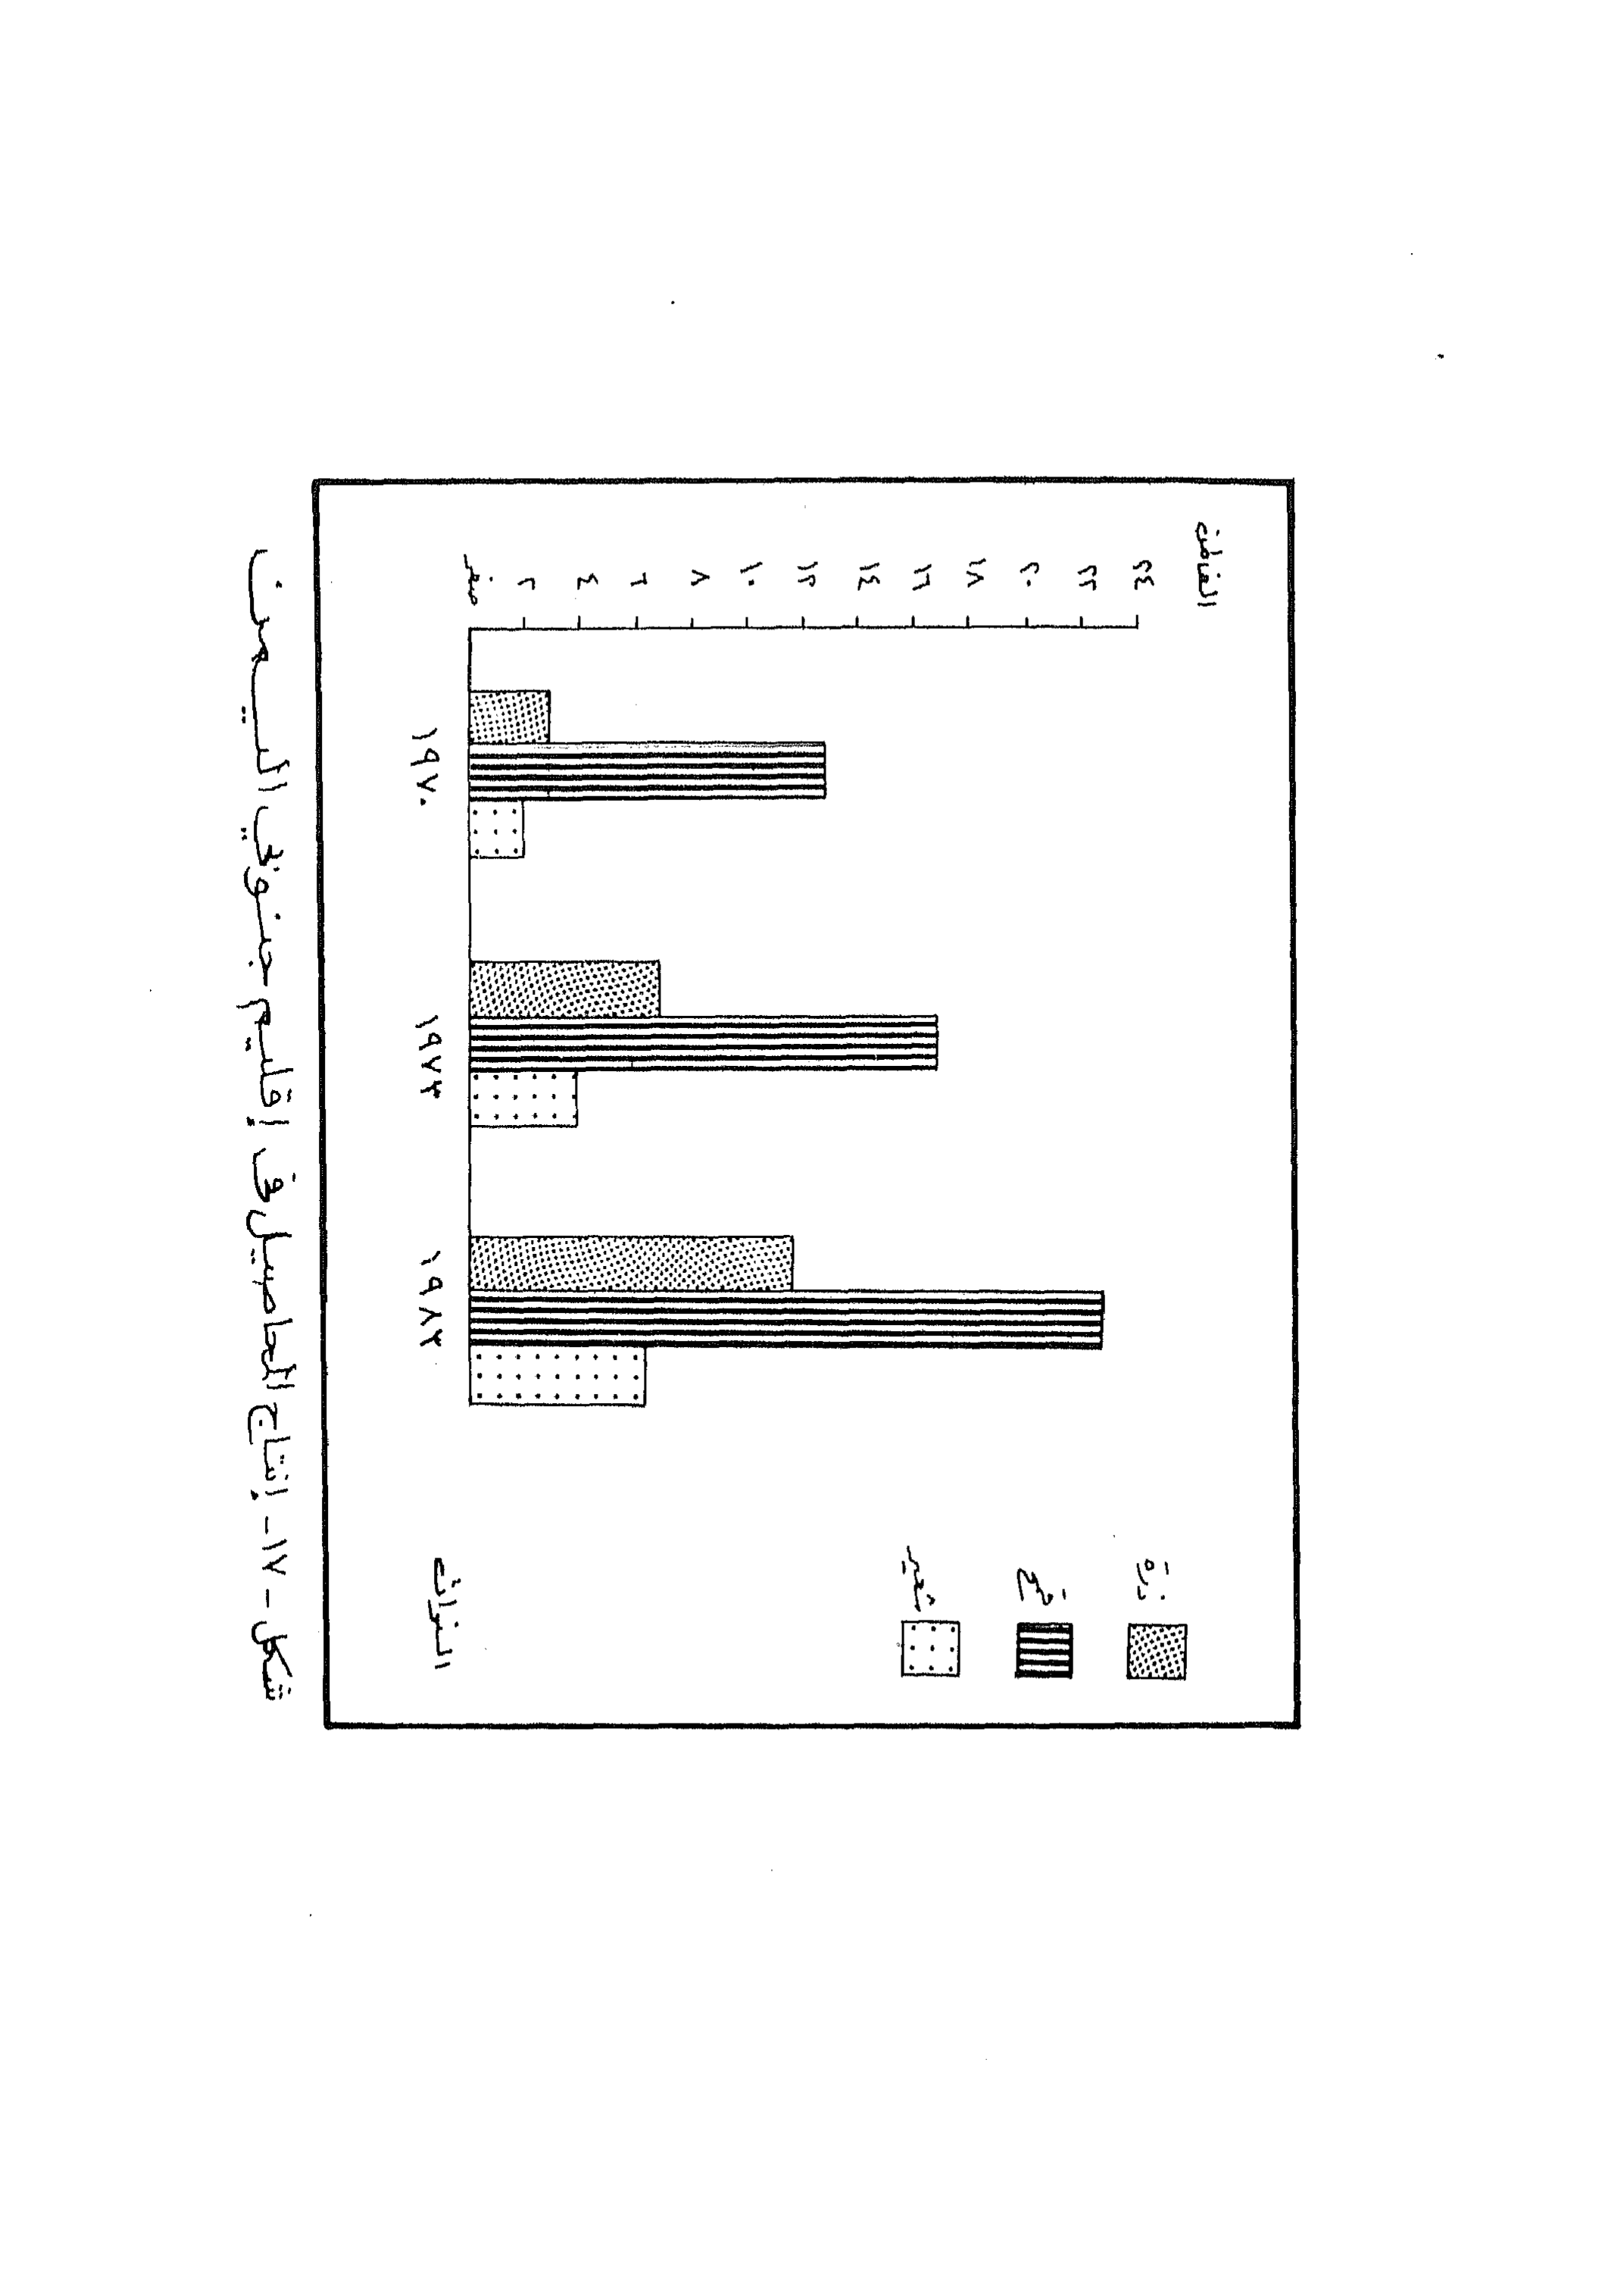 ألف طن
٢٤
٢٢
٢٠
١٨
١٦
١٤
١٢
١٠
٨
٦
٤
٢
صفر
ذرة
قمح
شعير
١٩٧٠
١٩٧٣
١٩٨٣
السنوات
شكل -١٧- إنتاج المحاصيل في إقليم جنوبي اليمن